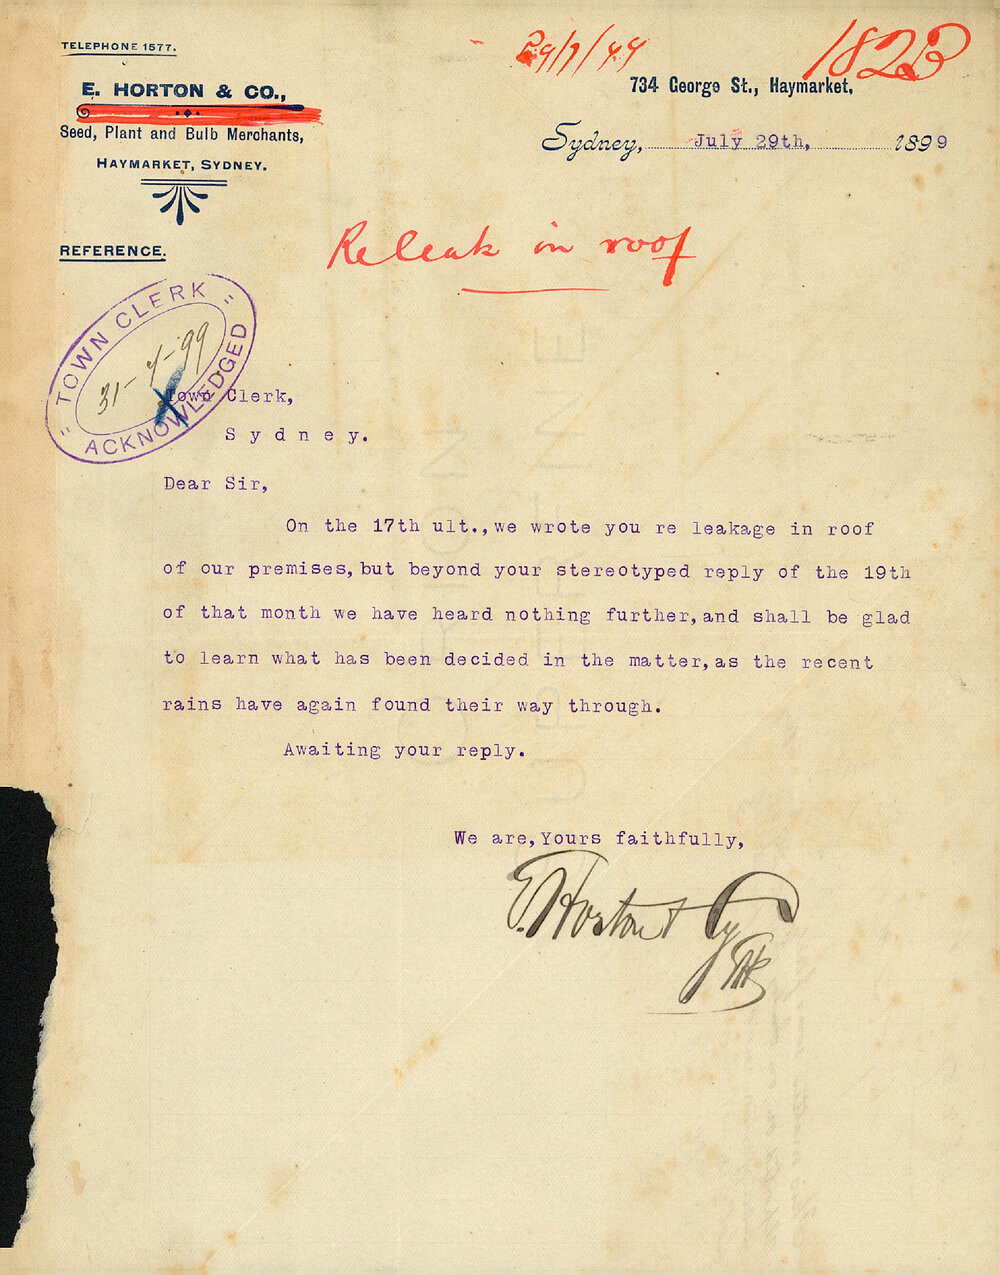 TELEPHONE 1577.
E. HORTON & CO.,
Seed, Plant and Bulb Merchants,
HAYMARKET, SYDNEY.
REFERENCE.
29/7/99
1823
734 George St., Haymarket,
Sydney, July 29th, 1899
Re leak in roof
TOWN CLERK
31-7-99
ACKNOWLEDGED
Town Clerk,
Sydney.
Dear Sir,
On the 17th ult.,we wrote you re leakage in roof
of our premises,but beyond your stereotyped reply of the 19th
of that month we have heard nothing further,and shall be glad
to learn what has been decided in the matter,as the recent
rains have again found their way through.
Awaiting your reply.
We are,Yours faithfully,
E. Horton & Co